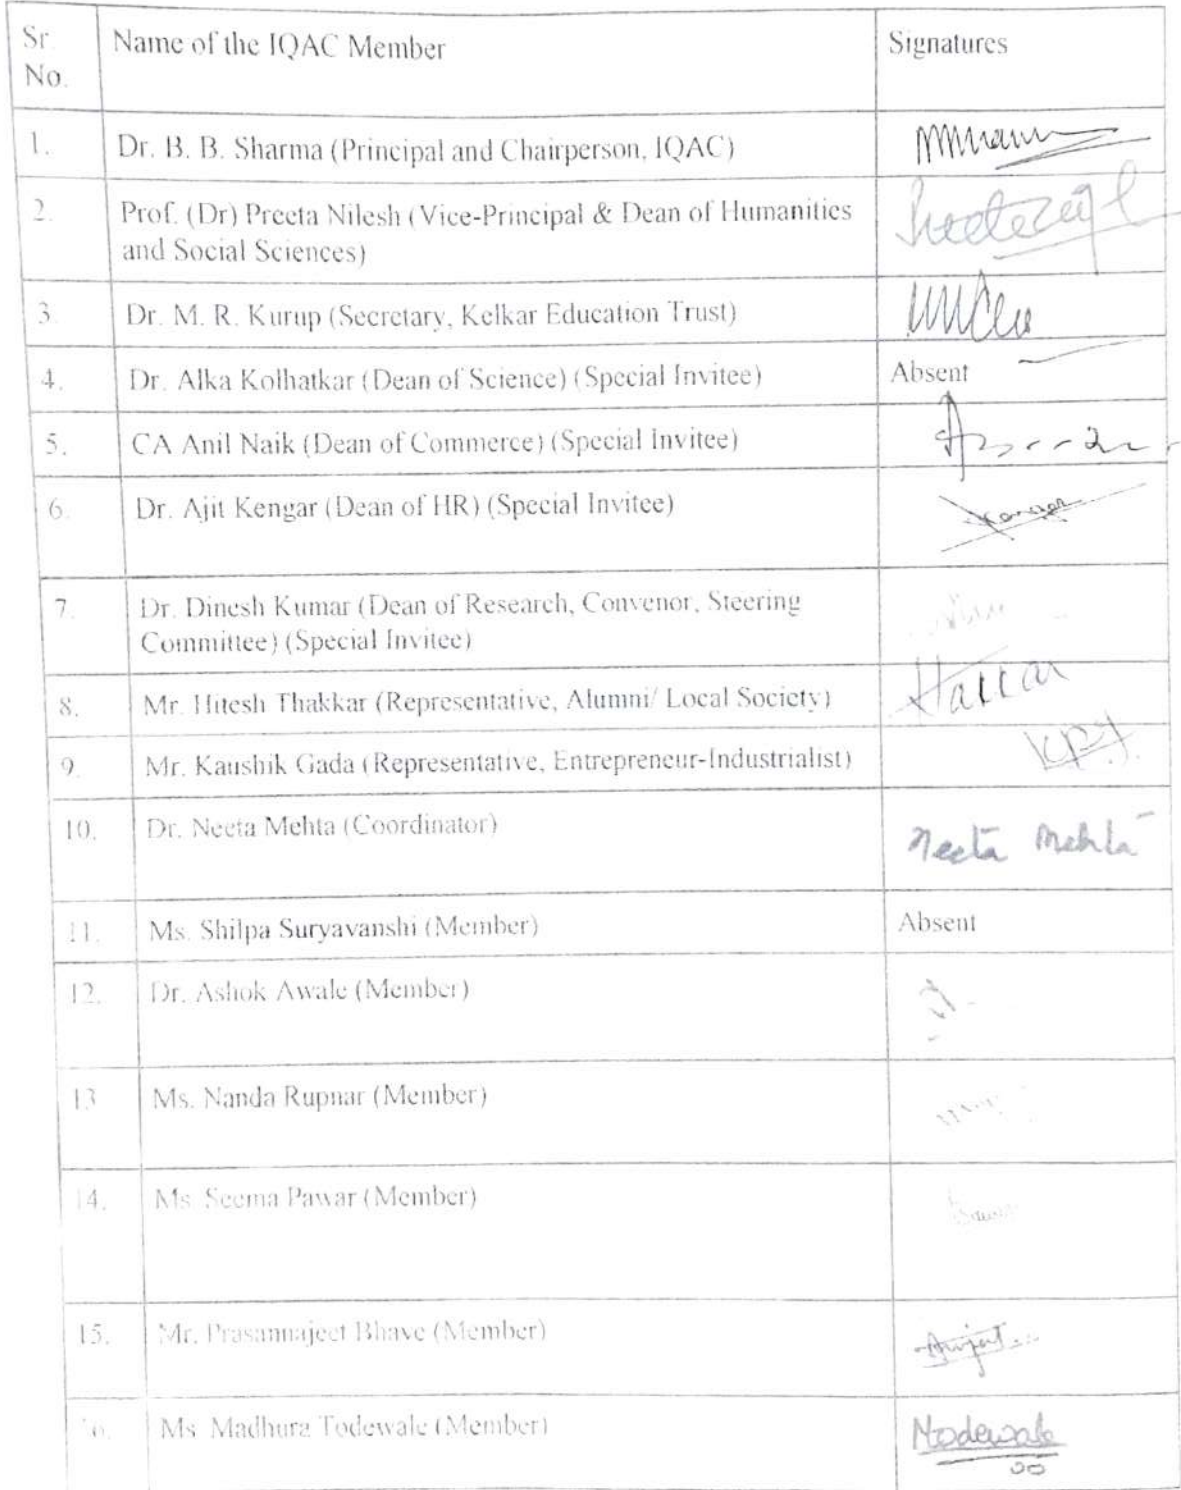 Sr. No. Name of the IQAC Member Signatures
1. Dr. B. B. Sharma (Principal and Chairperson, IQAC)
2. Prof. (Dr) Preeta Nilesh (Vice-Principal & Dean of Humanities
and Social Sciences)
3. Dr. M. R. Kurup (Secretary, Kelkar Education Trust)
4. Dr. Alka Kolhatkar (Dean of Science) (Special Invitee) Absent
5. CA Anil Naik (Dean of Commerce) (Special Invitee)
6. Dr. Ajit Kengar (Dean of HR) (Special Invitee)
7. Dr. Dinesh Kumar (Dean of Research, Convenor, Steering
Committee) (Special Invitee)
8. Mr. Hitesh Thakkar (Representative, Alumni/ Local Society)
9. Mr. Kaushik Gada (Representative, Entrepreneur-Industrialist)
10. Dr. Neeta Mehta (Coordinator) Neeta Mehta
11. Ms. Shilpa Suryavanshi (Member) Absent
12. Dr. Ashok Awale (Member)
13 Ms. Nanda Rupnar (Member)
14. Ms. Seema Pawar (Member)
15. Mr. Prasannajeet Bhave (Member)
16. Ms. Madhura Todewale (Member)